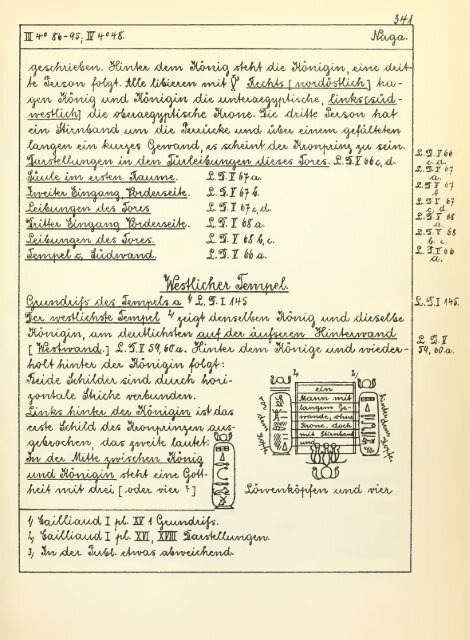 341
III 4° 86-95; IV 4° 48.
Naga.
geschrieben. Hinter dem König steht die Königin, eine drit-
te Person folgt. Alle libieren mit Rechts [nordöstlich] ha-
gen König und Königin die unteraegyptische, links [süd-
westlich] die oberaegyptische Krone. Die dritte Person hat
ein Stirnband um die Perrücke und über einem gefältelten
langen ein kurzes Gewand, es scheint der Kronprinz zu sein.
Darstellungen in den Türleibungen dieses Tores. L.D. V 66 c, d.
Säule im ersten Raume. L.D. V 67 a.
Zweiter Eingang, Vorderseite. L.D. V 67 b.
Leibungen des Tores L.D. V 67 c, d.
Dritter Eingang Vorderseite. L.D. V 68 a.
Leibungen des Tores. L.D. V 68 b, c.
Tempel c, Südwand. L.D. V 66 a.
L.D. V 66
c. d.
L.D. V 67
a.
L.D. V 67
b
L.D. V 67
c, d.
L.D. V 68
a.
L.D. V 68
b. c.
L.D. V 66
a.
Westlicher Tempel.
Grundriſs des Tempels a 1) L.D. I 145
L.D. I 145.
Der westlichste Tempel 2) zeigt denselben König und dieselbe
Königin, am deutlichsten auf der äuſseren Hinterwand
[Westwand.] L.D. V 59, 60 a. Hinter dem Könige und wieder-
L.D. V
59, 60 a.
holt hinter der Königin folgt:
Beide Schilder sind durch hori-
zontale Striche verbunden.
Links hinter der Königin ist das
erste Schild des Kronprinzen aus-
gebrochen, das zweite lautet:
In der Mitte zwischen König
und Königin steht eine Gott-
heit mit drei [oder vier?]
3)
ein
Mann mit
langem Ge-
wande, ohne
Krone, doch
mit Stirnband
und
Löwenköpfen und vier
1) Cailliaud I pl. XV 1 Grundriſs.
2) Cailliaud I pl. XVI, XVIII Darstellungen.
3) In der Publ. etwas abweichend.